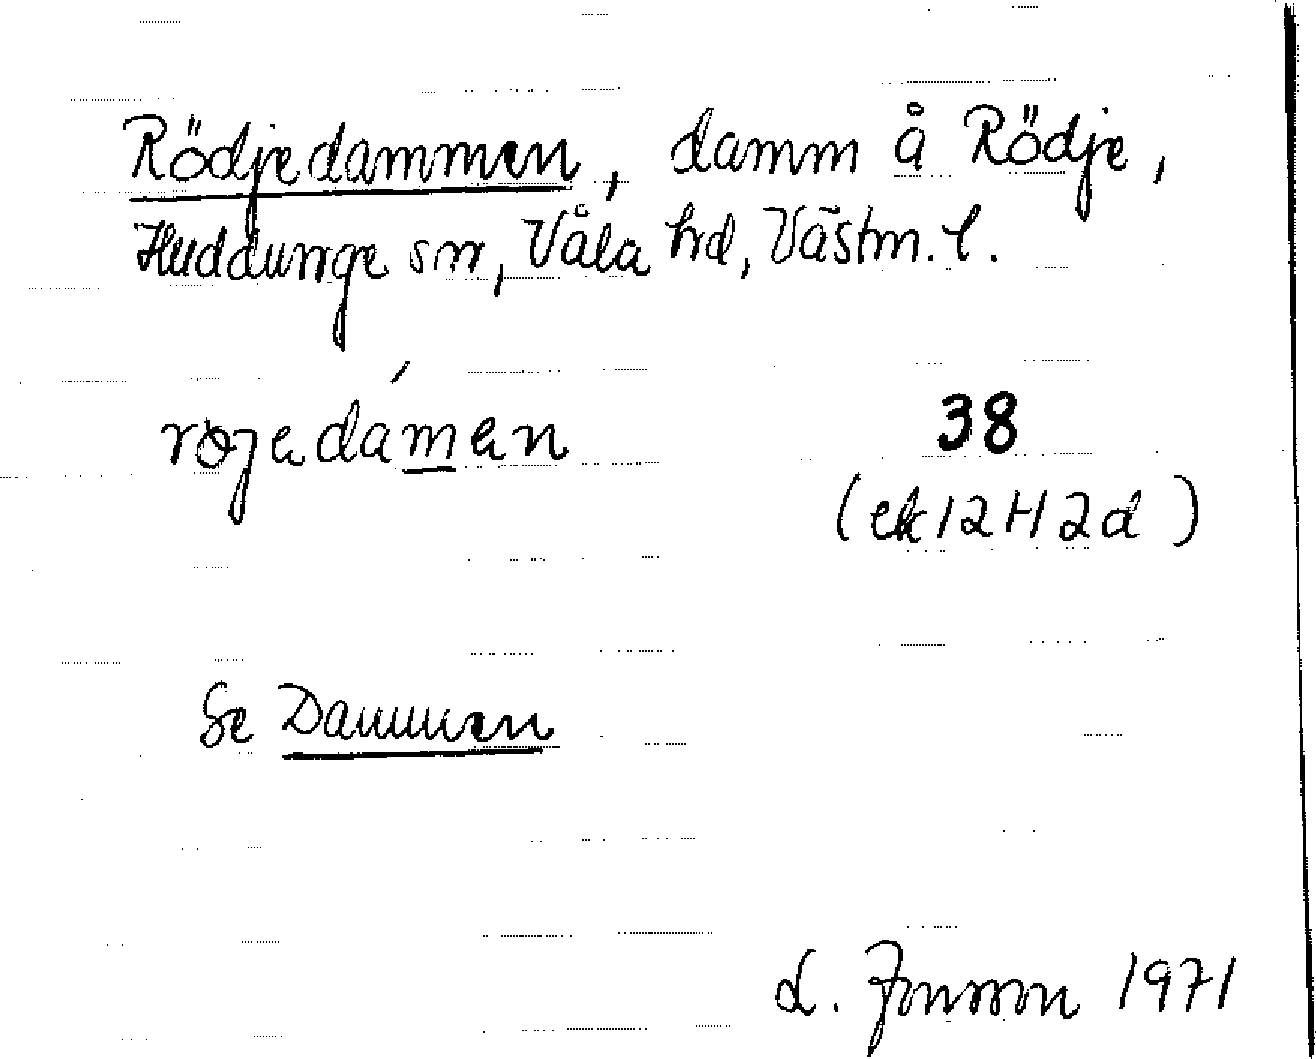 Rödjedammen, damm å Rödje,
Huddunge sn, Våla hd, Västm. l.
röjedámen
38
(ek 12 H 2d)
Se Dammen
L. Jonsson 1971